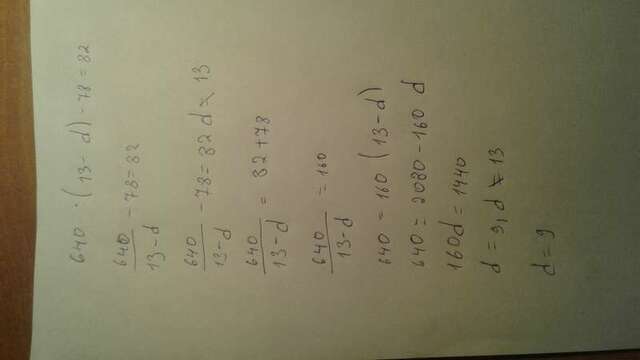 640 · (13 - d) - 78 = 82
640/(13 - d) - 78 = 82
640/(13 - d) - 78 = 82 d ≠ 13
640/(13 - d) = 82 + 78
640/(13 - d) = 160
640 = 160 (13 - d)
640 = 2080 - 160 d
160d = 1440
d = 9, d ≠ 13
d = 9